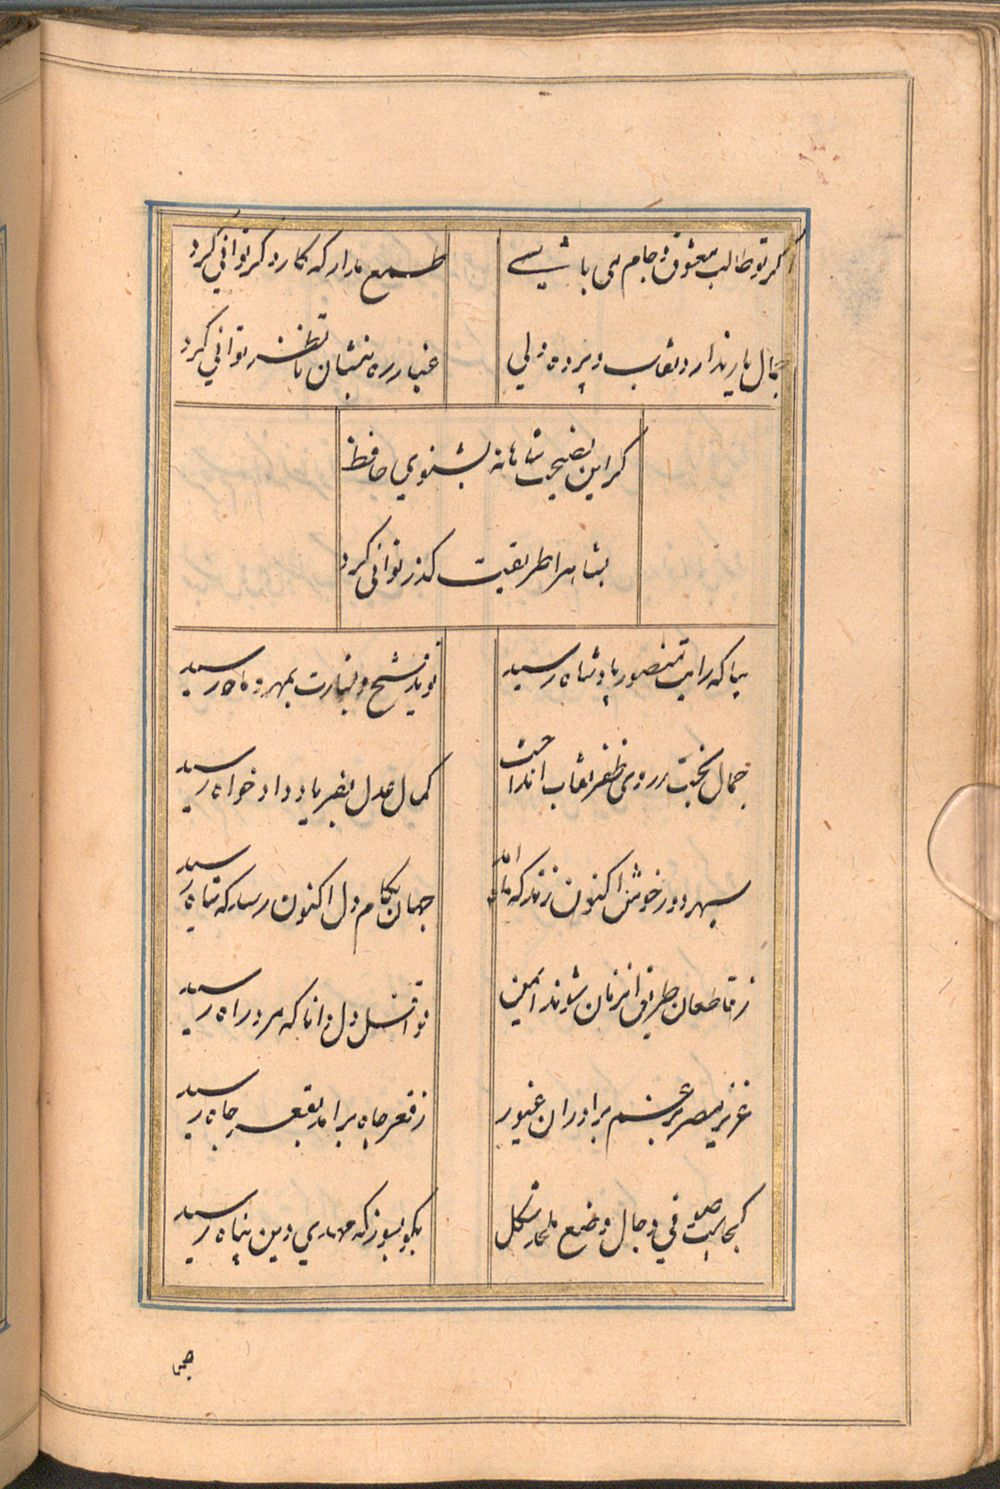 گر تو طالب معشوق و جام می باشی
طمع مدار که کار دگر توانی کرد
جمال یار ندارد نقاب و پرده ولی
غبار ره بنشان تا نظر توانی کرد
گر این نصیحت شاهانه بشنوی حافظ
بشاهراه طریقت گذر توانی کرد
بیا که رایت منصور پادشاه رسید
نوید فتح و بشارت بمهر و ماه رسید
جمال بخت ز روی ظفر نقاب انداخت
کمال عدل بفریاد دادخواه رسید
سپهر دور خوش اکنون زند که ماه آمد
جهان بکام دل اکنون رسد که شاه رسید
ز قاطعان طریق این زمان شوند ایمن
قوافل دل و دانا که مرد راه رسید
عزیز مصر برغم برادران غیور
ز قعر چاه برآمد بقعر جاه رسید
کجاست صوفی دجال وضع ملحد شکل
بگو بسوز که مهدی دین پناه رسید